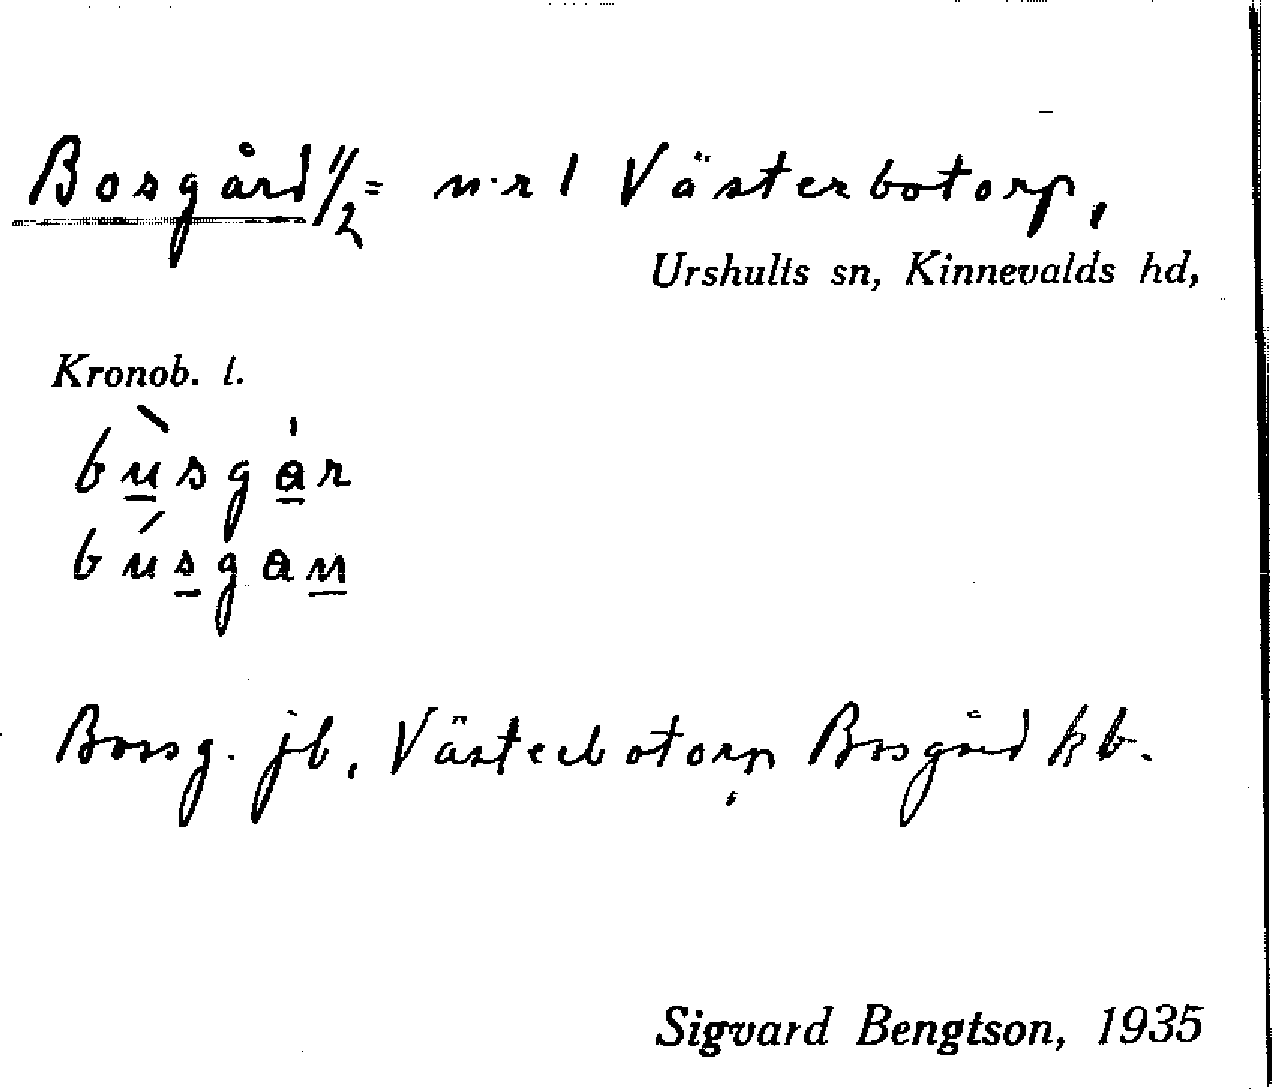 Bosgård 1/2 = n:r 1 Västerbotorp,
Urshults sn, Kinnevalds hd,
Kronob. l.
bùsgár
búsgan
Bossg. jb, Västerbotorp, Bosgård kb.
Sigvard Bengtson, 1935